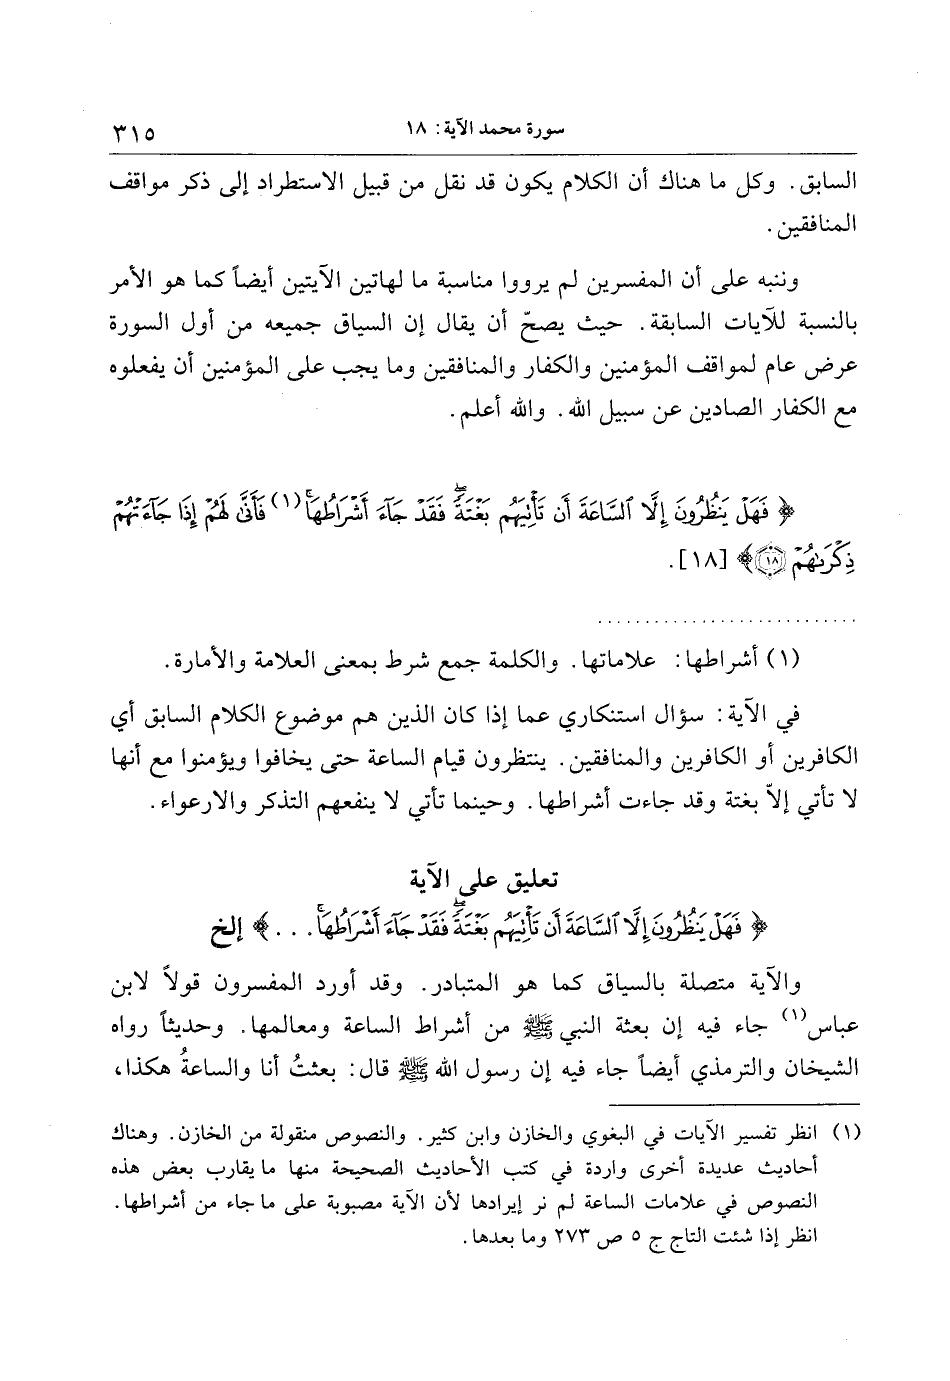 سورة محمد الآية: ١٨
٣١٥
السابق. وكل ما هناك أن الكلام يكون قد نقل من قبيل الاستطراد إلى ذكر مواقف
المنافقين.
وننبه على أن المفسرين لم يرووا مناسبة ما لهاتين الآيتين أيضاً كما هو الأمر
بالنسبة للآيات السابقة. حيث يصحّ أن يقال إن السياق جميعه من أول السورة
عرض عام لمواقف المؤمنين والكفار والمنافقين وما يجب على المؤمنين أن يفعلوه
مع الكفار الصادين عن سبيل الله. والله أعلم.
﴿ فَهَلْ يَنظُرُونَ إِلَّا ٱلسَّاعَةَ أَن تَأْتِيَهُم بَغْتَةًۖ فَقَدْ جَآءَ أَشْرَاطُهَاۚ (١) فَأَنَّىٰ لَهُمْ إِذَا جَآءَتْهُمْ
ذِكْرَىٰهُمْ ١٨ ﴾ [١٨].
(١) أشراطها: علاماتها. والكلمة جمع شرط بمعنى العلامة والأمارة.
في الآية: سؤال استنكاري عما إذا كان الذين هم موضوع الكلام السابق أي
الكافرين أو الكافرين والمنافقين. ينتظرون قيام الساعة حتى يخافوا ويؤمنوا مع أنها
لا تأتي إلاّ بغتة وقد جاءت أشراطها. وحينما تأتي لا ينفعهم التذكر والارعواء.
تعليق على الآية
﴿ فَهَلْ يَنظُرُونَ إِلَّا ٱلسَّاعَةَ أَن تَأْتِيَهُم بَغْتَةًۖ فَقَدْ جَآءَ أَشْرَاطُهَاۚ . . . ﴾ إلخ
والآية متصلة بالسياق كما هو المتبادر. وقد أورد المفسرون قولاً لابن
عباس(١) جاء فيه إن بعثة النبي ﷺ من أشراط الساعة ومعالمها. وحديثاً رواه
الشيخان والترمذي أيضاً جاء فيه إن رسول الله ﷺ قال: بعثتُ أنا والساعةُ هكذا،
(١) انظر تفسير الآيات في البغوي والخازن وابن كثير. والنصوص منقولة من الخازن. وهناك
أحاديث عديدة أخرى واردة في كتب الأحاديث الصحيحة منها ما يقارب بعض هذه
النصوص في علامات الساعة لم نر إيرادها لأن الآية مصبوبة على ما جاء من أشراطها.
انظر إذا شئت التاج ج ٥ ص ٢٧٣ وما بعدها.